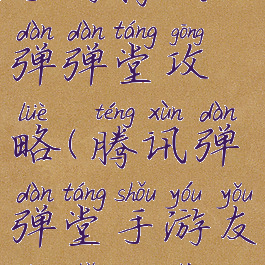 dàn dàn táng gōng
弹弹堂攻
lüè téng xùn dàn
略(腾讯弹
dàn táng shǒu yóu yǒu
弹堂手游友